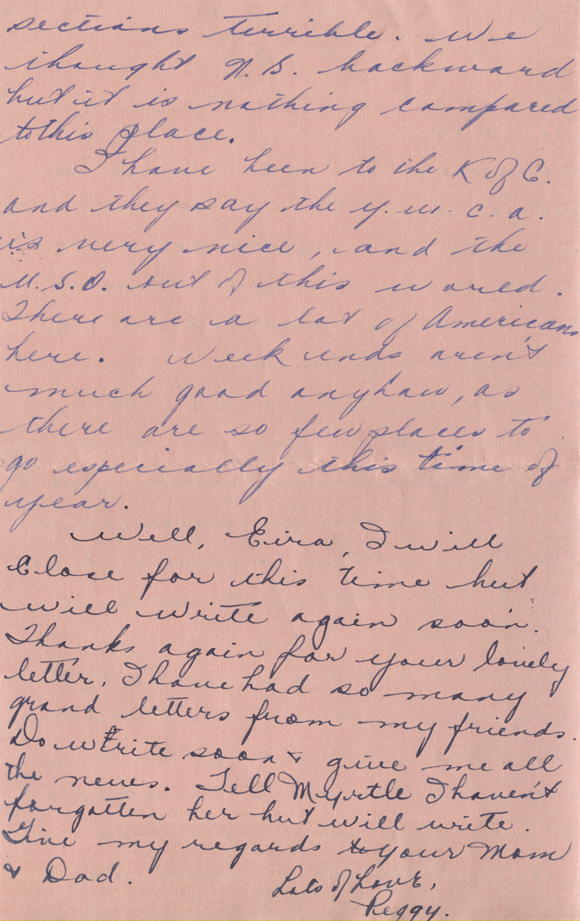 sections terrible. We
thought N.B. backward
but it is nothing compared
to this place.
I have been to the K of C.
and they say the Y.M.C.A.
is very nice, and the
U.S.O. out of this world.
There are a lot of Americans
here. Week ends aren't
much good anyhow, as
there are so few places to
go especially this time of
year.
Well, Eira, I will
Close for this time but
will write again soon.
Thanks again for your lovely
letter. I have had so many
grand letters from my friends.
Do write soon & give me all
the news. Tell Myrtle I haven't
forgotten her but will write.
Give my regards to your Mom
& Dad.
Lots of Love,
Peggy.